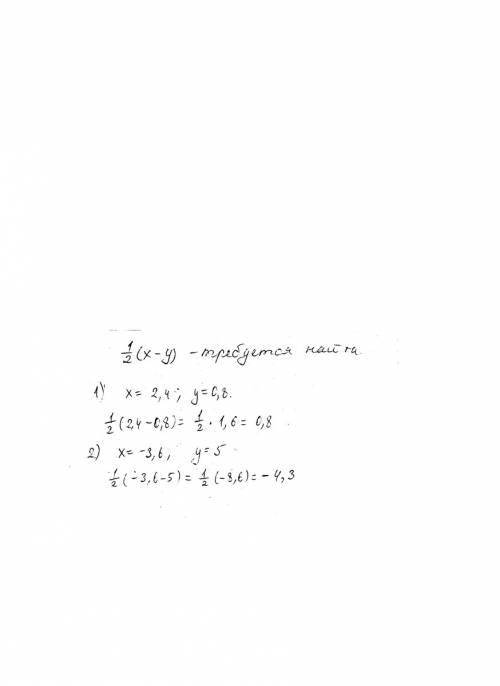 1/2 (x-y) - требуется найти.
1) x = 2,4; y=0,8.
1/2 (2,4-0,8) = 1/2 · 1,6 = 0,8
2) x= -3,6; y = 5
1/2 (-3,6-5) = 1/2 (-8,6) = - 4,3